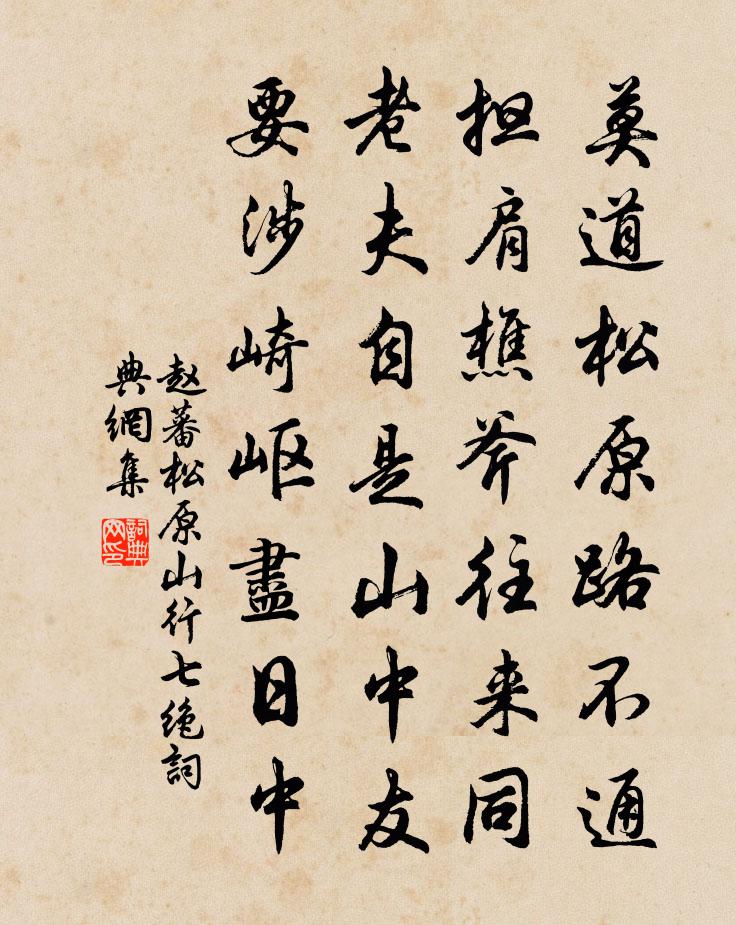 莫道松原路不通
担肩樵斧往来同
老夫自是山中友
要涉崎岖盡日中
赵蕃松原山行七绝詞
典網集
詞典网印